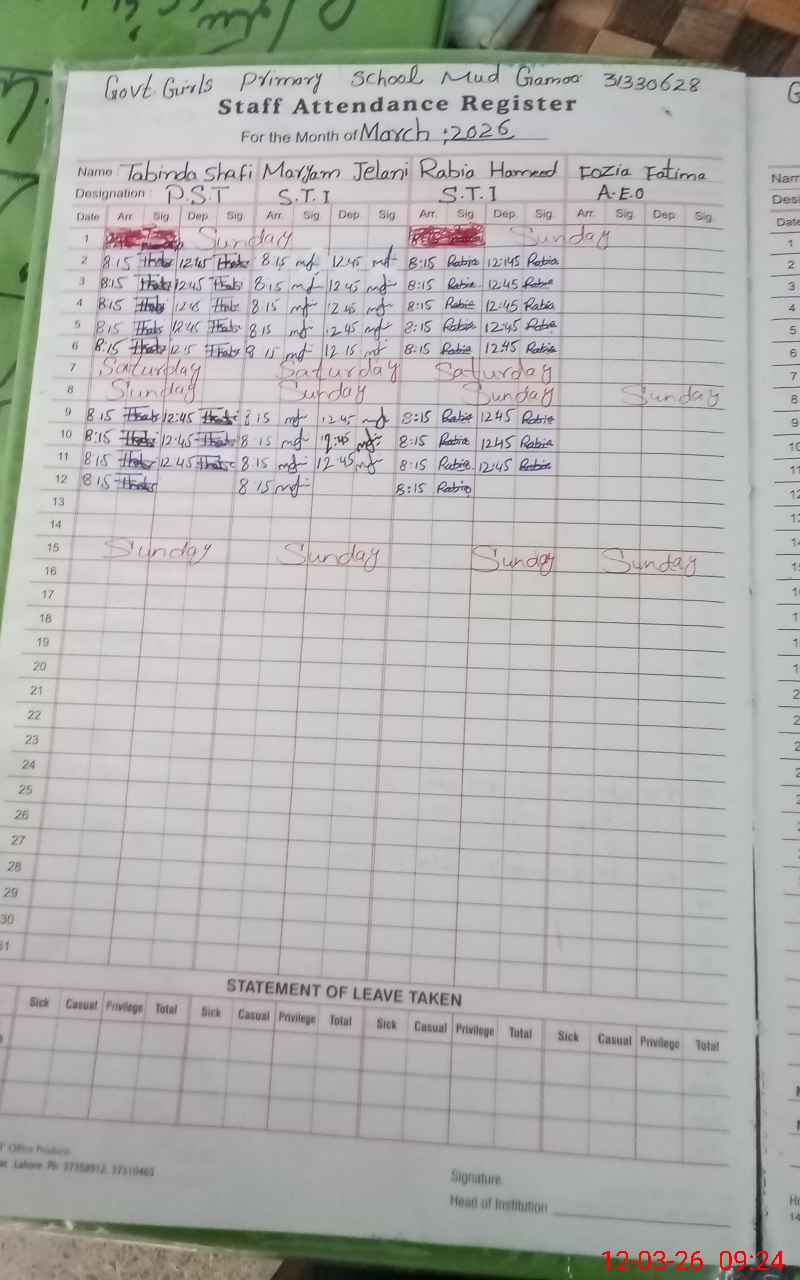 Govt Girls Primary School Mud Gamoo 31330628
Staff Attendance Register
For the Month of March ; 2026
Name Tabinda Shafi Maryam Jelani Rabia Hameed Fozia Fatima
Designation : P.S.T S.T.I S.T.I A.E.O
Date Arr. Sig. Dep. Sig. Arr. Sig. Dep. Sig. Arr. Sig. Dep. Sig. Arr. Sig. Dep. Sig.
1 Sunday Sunday
2 8:15 12:45 8 15 12:45 8:15 Rabia 12:45 Rabia
3 8:15 12:45 8:15 12 45 8:15 Rabia 12:45 Rabia
4 8:15 12:45 8 15 12 45 8:15 Rabia 12:45 Rabia
5 8:15 12:45 8 15 12 45 8:15 Rabia 12:45 Rabia
6 8:15 12:15 8 15 12 15 8:15 Rabia 12:45 Rabia
7 Saturday Saturday Saturday
8 Sunday Sunday Sunday Sunday
9 8 15 12:45 8 15 12 45 8:15 Rabia 12 45 Rabia
10 8:15 12:45 8 15 12:45 8:15 Rabia 12 45 Rabia
11 8 15 12 45 8 15 12:45 8:15 Rabia 12:45 Rabia
12 8 15 8 15 8:15 Rabia
13
14
15 Sunday Sunday Sunday Sunday
16
17
18
19
20
21
22
23
24
25
26
27
28
29
30
31
STATEMENT OF LEAVE TAKEN
Sick Casual Privilege Total Sick Casual Privilege Total Sick Casual Privilege Total Sick Casual Privilege Total
Office Products
Lahore. Ph: 37358912, 37310463
Signature
Head of Institution
12-03-26 09:24